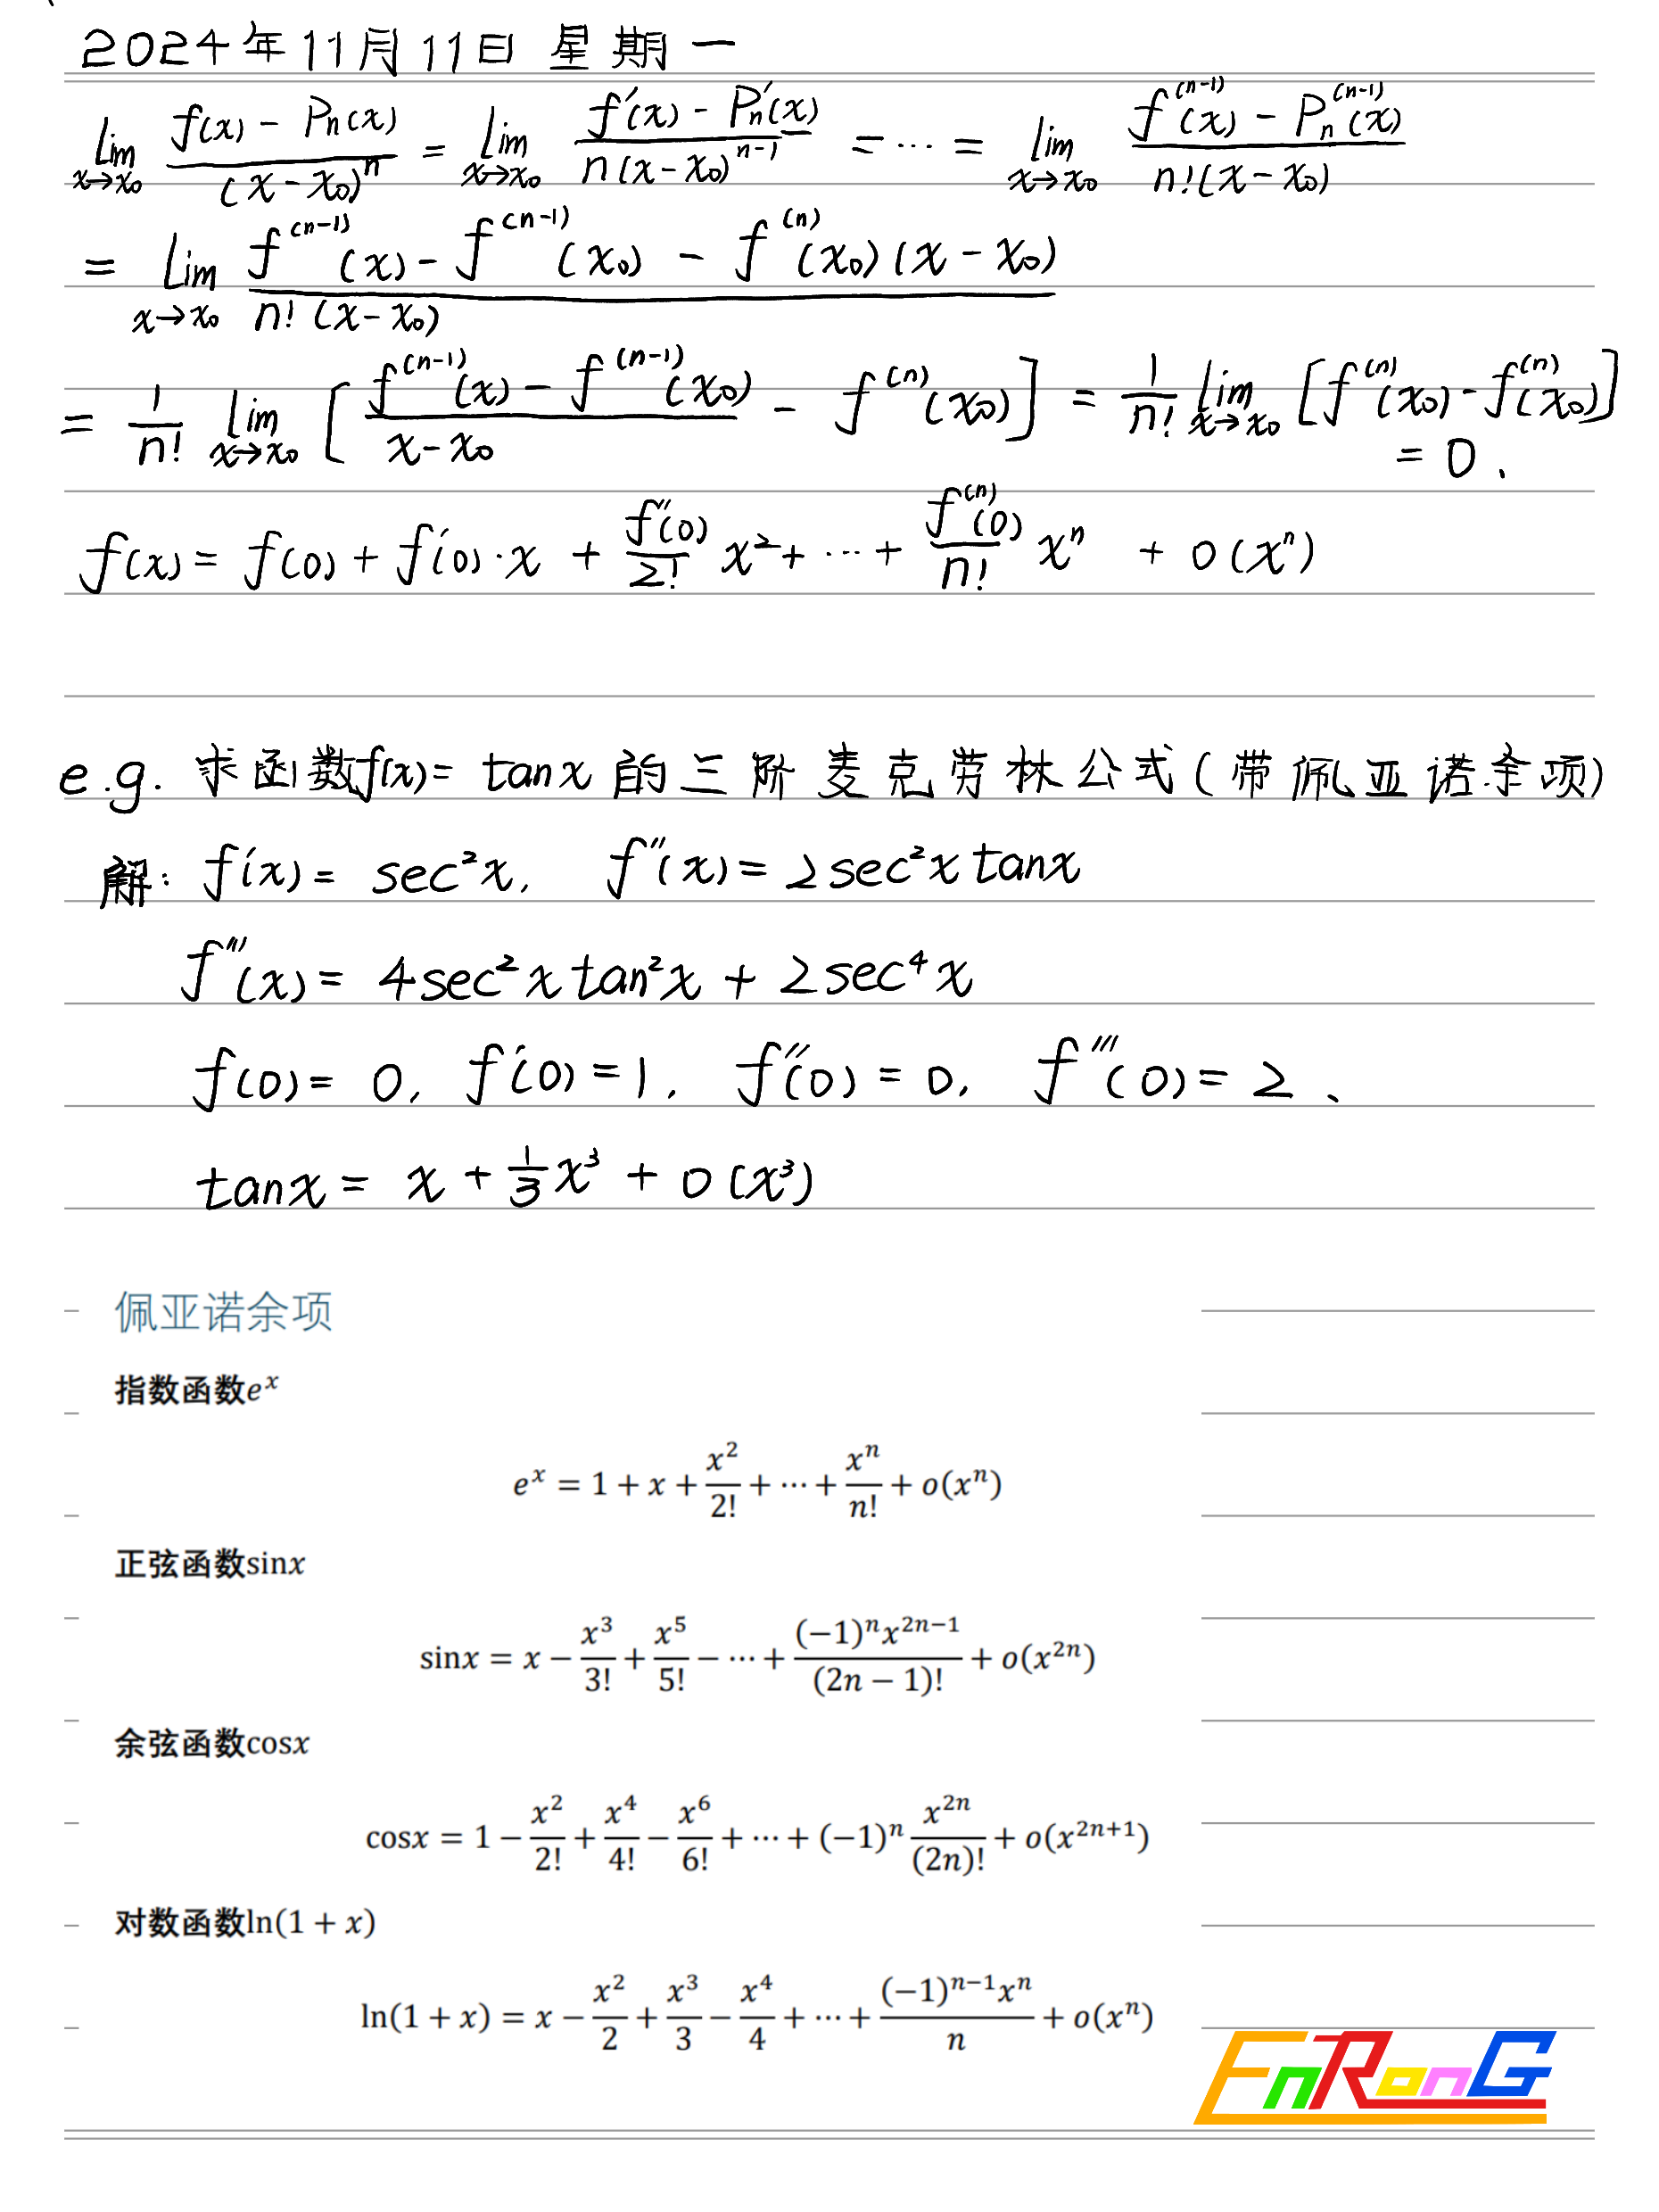 2024年11月11日 星期一
lim_{x→x₀} (f(x) - Pₙ(x))/((x-x₀)ⁿ) = lim_{x→x₀} (f'(x) - Pₙ'(x))/(n(x-x₀)ⁿ⁻¹) = ⋯ = lim_{x→x₀} (f⁽ⁿ⁻¹⁾(x) - Pₙ⁽ⁿ⁻¹⁾(x))/(n!(x-x₀))
= lim_{x→x₀} (f⁽ⁿ⁻¹⁾(x) - f⁽ⁿ⁻¹⁾(x₀) - f⁽ⁿ⁾(x₀)(x-x₀))/(n!(x-x₀))
= 1/n! lim_{x→x₀} [(f⁽ⁿ⁻¹⁾(x) - f⁽ⁿ⁻¹⁾(x₀))/(x-x₀) - f⁽ⁿ⁾(x₀)] = 1/n! lim_{x→x₀} [f⁽ⁿ⁾(x₀) - f⁽ⁿ⁾(x₀)]
= 0.
f(x) = f(0) + f'(0)·x + f''(0)/2! x² + ⋯ + f⁽ⁿ⁾(0)/n! xⁿ + o(xⁿ)
e.g. 求函数f(x)= tanx 的三阶麦克劳林公式(带佩亚诺余项)
解: f'(x) = sec²x, f''(x) = 2sec²x tanx
f'''(x) = 4sec²x tan²x + 2sec⁴x
f(0) = 0, f'(0) = 1, f''(0) = 0, f'''(0) = 2.
tanx = x + 1/3 x³ + o(x³)
佩亚诺余项
指数函数eˣ
eˣ = 1 + x + x²/2! + ⋯ + xⁿ/n! + o(xⁿ)
正弦函数sinx
sinx = x − x³/3! + x⁵/5! − ⋯ + (−1)ⁿx²ⁿ⁻¹/(2n − 1)! + o(x²ⁿ)
余弦函数cosx
cosx = 1 − x²/2! + x⁴/4! − x⁶/6! + ⋯ + (−1)ⁿ x²ⁿ/(2n)! + o(x²ⁿ⁺¹)
对数函数ln(1 + x)
ln(1 + x) = x − x²/2 + x³/3 − x⁴/4 + ⋯ + (−1)ⁿ⁻¹xⁿ/n + o(xⁿ)
EnRonG